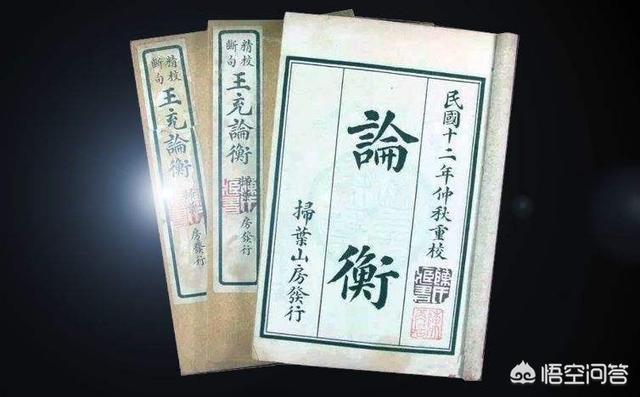 精校
斷句
王充論衡
房發行
精校
斷句
王充論衡
房發行
民國十二年仲秋重校
論衡
掃葉山房發行
悟空问答